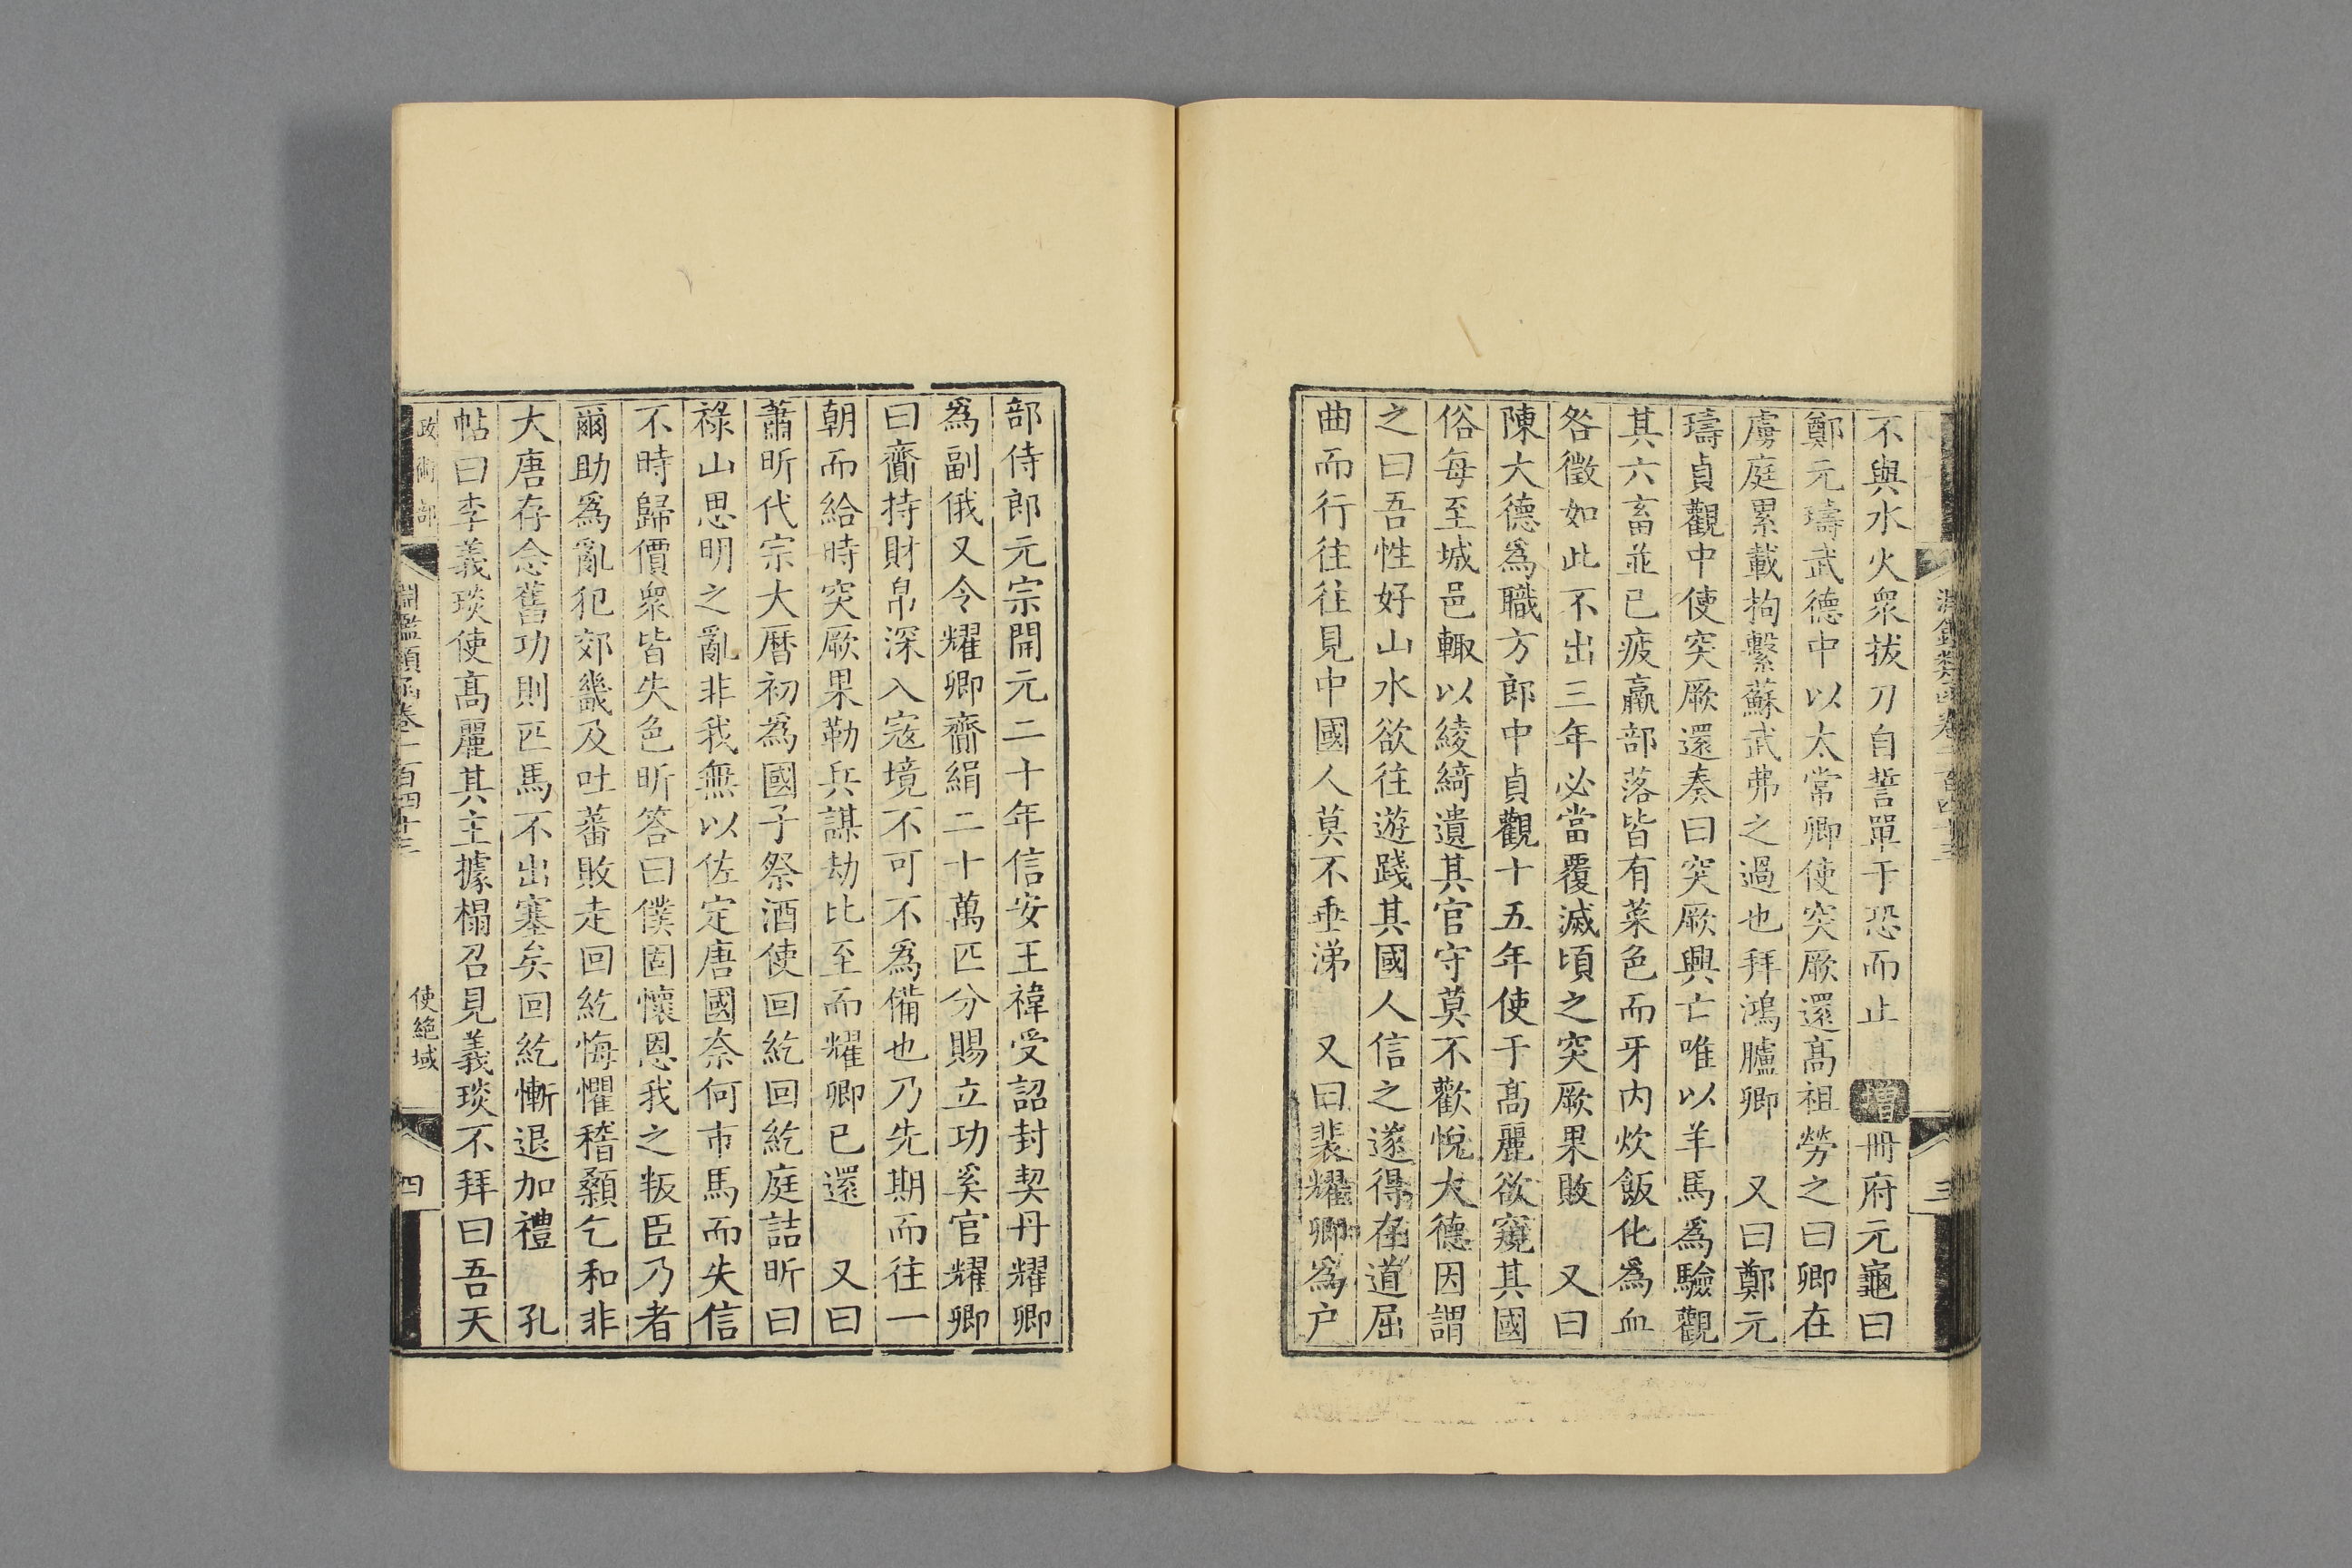 不與水火衆拔刀自誓單于恐而止 增 冊府元龜曰
鄭元璹武德中以太常卿使突厥還髙祖勞之曰卿在
虜庭累載拘繫蘇武弗之過也拜鴻臚卿 又曰鄭元
璹貞觀中使突厥還奏曰突厥興亡唯以羊馬爲驗觀
其六畜並已疲羸部落皆有菜色而牙内炊飯化爲血
咎徵如此不出三年必當覆滅頃之突厥果敗 又曰
陳大德爲職方郎中貞觀十五年使于髙麗欲窺其國
俗每至城邑輙以綾綺遺其官守莫不歡悅大德因謂
之曰吾性好山水欲往遊踐其國人信之遂得在道屈
曲而行往往見中國人莫不垂涕 又曰裴耀卿爲户
部侍郎元宗開元二十年信安王禕受詔封契丹耀卿
爲副俄又令耀卿齎絹二十萬匹分賜立功奚官耀卿
曰齎持財帛深入寇境不可不爲備也乃先期而往一
朝而給時突厥果勒兵謀劫比至而耀卿已還 又曰
蕭昕代宗大曆初爲國子祭酒使回紇回紇庭詰昕曰
祿山思明之亂非我無以佐定唐國奈何市馬而失信
不時歸價衆皆失色昕答曰僕固懷恩我之叛臣乃者
爾助爲亂犯郊畿及吐蕃敗走回紇悔懼稽顙乞和非
大唐存念舊功則匹馬不出塞矣回紇慚退加禮 孔
帖曰李義琰使髙麗其主據榻召見義琰不拜曰吾天
政術部
淵鑑類函卷一百四十三
使絶域
四